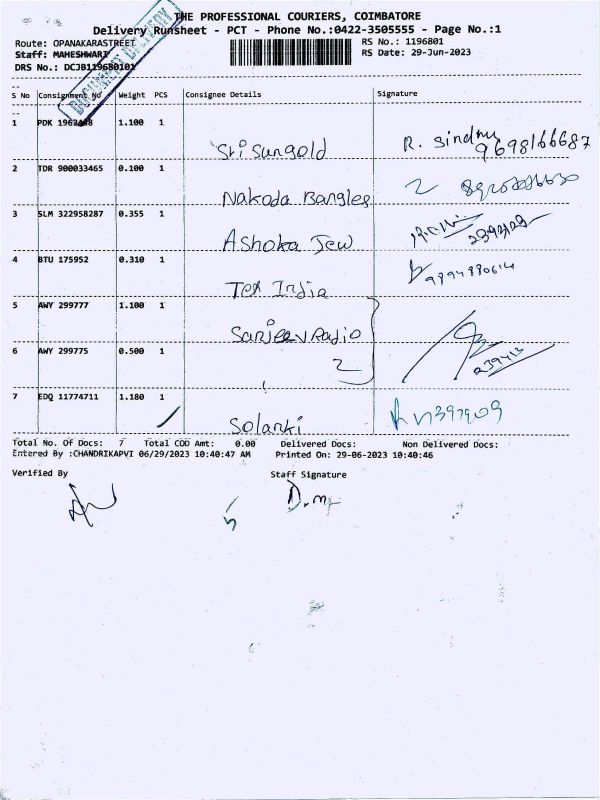 THE PROFESSIONAL COURIERS, COIMBATORE
Delivery Runsheet - PCT - Phone No.:0422-3505555 - Page No.:1
Route: OPANAKARASTREET
RS No.: 1196801
Staff: MAHESHWARI
RS Date: 29-Jun-2023
DRS No.: DCJB119680101
DOCUMENT DELIVERY
S No Consignment No Weight PCS Consignee Details Signature
1 PDK 1.100 1 Sri Sungold R. Sindhu 9698166687
2 TDR 900033465 0.100 1 Nakoda Bangles 2
3 SLM 322958287 0.355 1 Ashoka Jew
4 BTU 175952 0.310 1 Tex India
5 AWY 299777 1.100 1 Sanjeev Radio
6 AWY 299775 0.500 1 2
7 EDQ 11774711 1.180 1 Solanki
Total No. Of Docs: 7 Total COD Amt: 0.00 Delivered Docs: Non Delivered Docs:
Entered By :CHANDRIKAPVI 06/29/2023 10:40:47 AM Printed On: 29-06-2023 10:40:46
Verified By Staff Signature